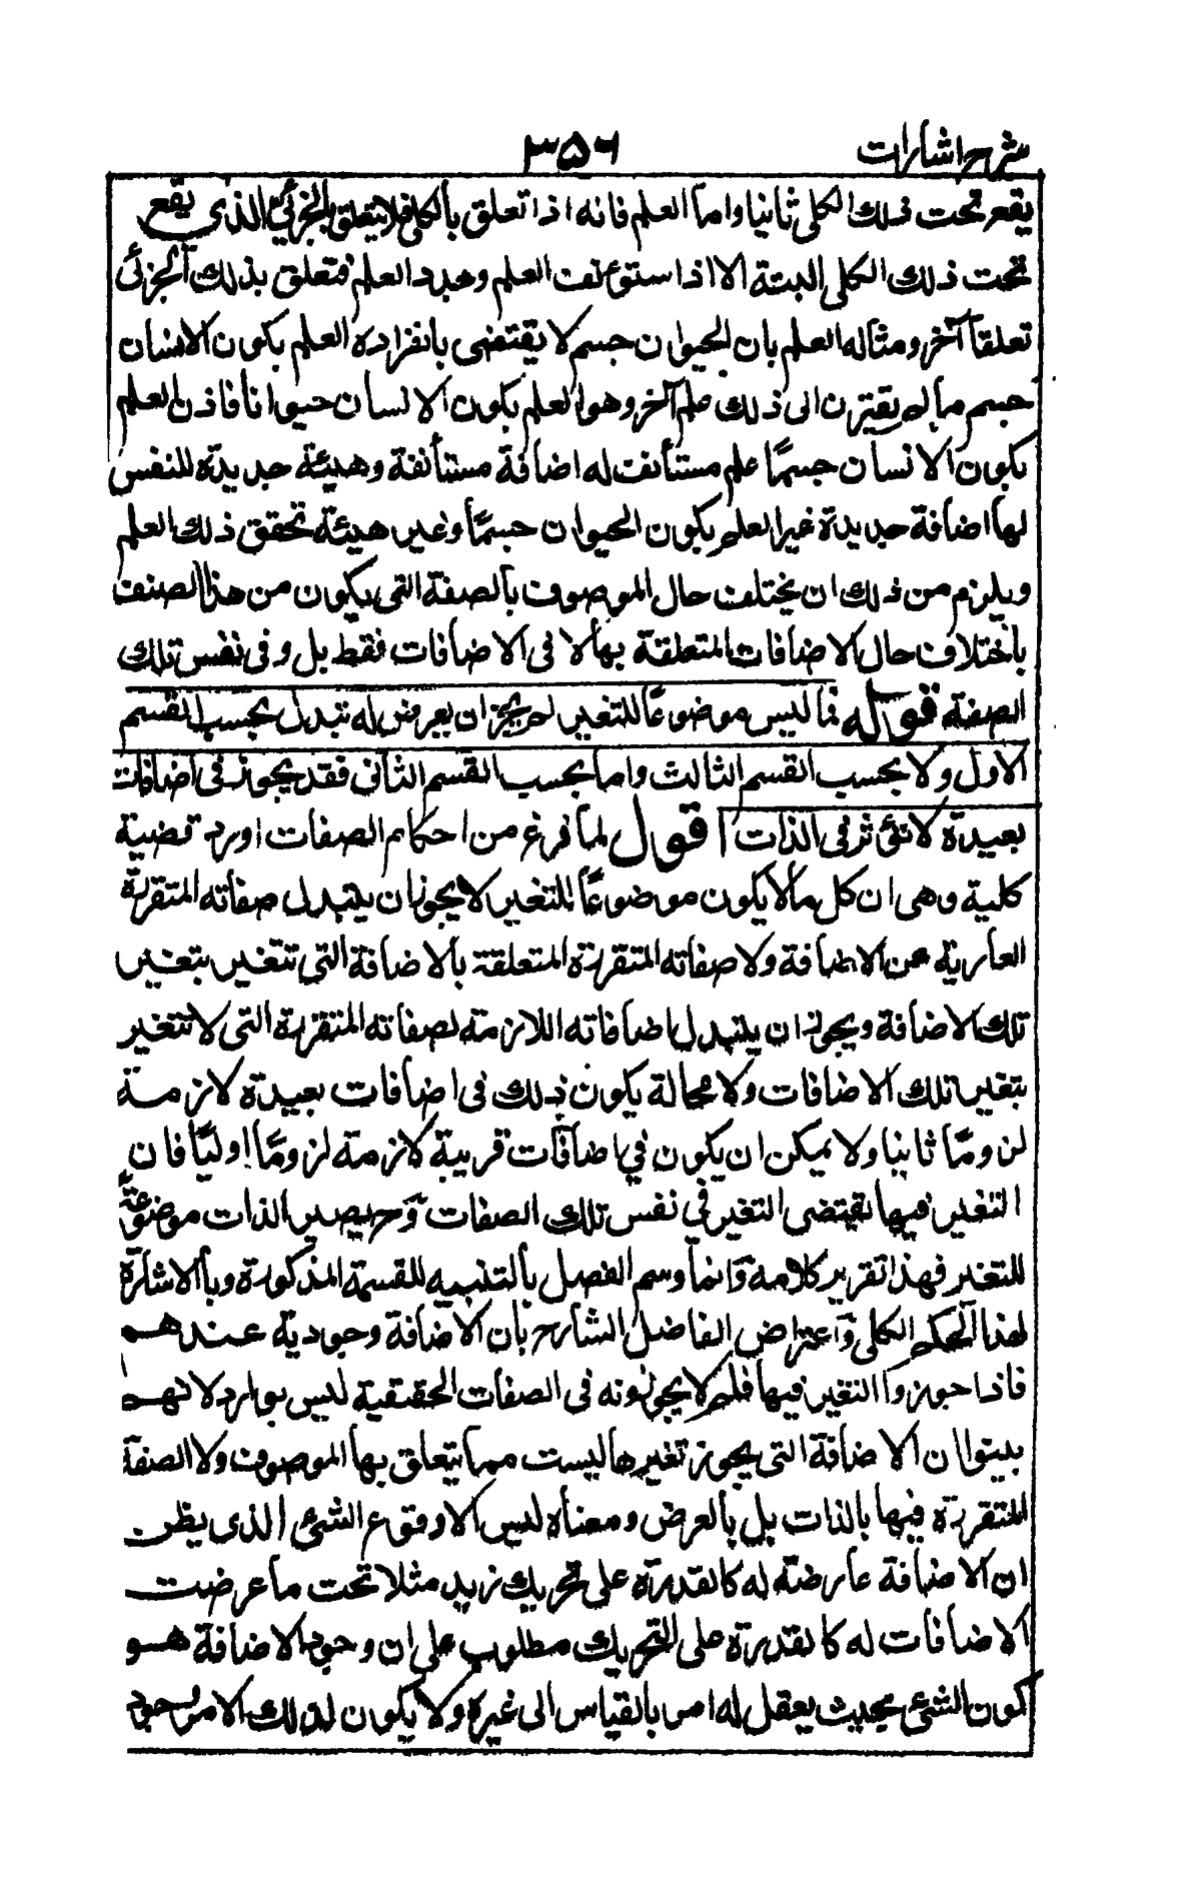 شرح اشارات ٣٥٦
يقع تحت ذلك الكلى ثانيا واما العلم فانه اذا تعلق بالكلى فلا يتعلق بالجزئى الذى يقع
تحت ذلك الكلى البتة الا اذا استونف العلم وجدد العلم فتعلق بذلك الجزئى
تعلقا آخر ومثاله العلم بان الحيوان جسم لا يقتضى بانفراده العلم بكون الانسان
جسم ما لم يقترن الى ذلك علم آخر وهو العلم بكون الانسان حيوانا فاذن العلم
بكون الانسان جسمًا علم مستأنف له اضافة مستأنفة وهيئة جديدة للنفس
لها اضافة جديدة غير العلم بكون الحيوان جسمًا وغير هيئة تحقق ذلك العلم
ويلزم من ذلك ان يختلف حال الموصوف بالصفة التى يكون من هذا الصنف
باختلاف حال الاضافات المتعلقة بها لا فى الاضافات فقط بل وفى نفس تلك
الصفة قوله فما ليس موضوعًا للتغير لم يجز ان يعرض له تبدل بحسب القسم
الاول ولا بحسب القسم الثالث واما بحسب القسم الثانى فقد يجوز فى اضافات
بعيدة لا تؤثر فى الذات اقول لما فرغ من احكام الصفات اورد قضية
كلية وهى ان كل ما لا يكون موضوعًا للتغير لا يجوز ان يتبدل صفاته المتقررة
العارية عن الاضافة ولا صفاته المتقررة المتعلقة بالاضافة التى تتغير بتغير
تلك الاضافة ويجوز ان يتبدل اضافاته اللازمة لصفاته المتقررة التى لا تتغير
بتغير تلك الاضافات ولا محالة يكون ذلك فى اضافات بعيدة لازمة
لزومًا ثانيا ولا يمكن ان يكون فى اضافات قريبة لازمة لزومًا اوليًا فان
التغير فيها يقتضى التغير فى نفس تلك الصفات وح يصير الذات موضوعة
للتغير فهذا تقرير كلامه وانما وسم الفصل بالتنبيه للقسمة المذكورة وبالاشارة
لهذا الحكم الكلى واعتراض الفاضل الشارح بان الاضافة وجودية عندهم
فاذا جوزوا التغير فيها فلم لا يجوزونه فى الصفات الحقيقية ليس بوارد لانهم
بينوا ان الاضافة التى يجوز تغيرها ليست مما يتعلق بها الموصوف ولا الصفة
المتقررة فيها بالذات بل بالعرض ومعناه ليس الا وقوع الشئ الذى يظن
ان الاضافة عارضة له كالقدرة على تحريك زيد مثلا تحت ما عرضت
الاضافات له كالقدرة على التحريك مطلوب على ان وجود الاضافة هو
كون الشئ بحيث يعقل له امر بالقياس الى غيره ولا يكون لذلك الامر وجود